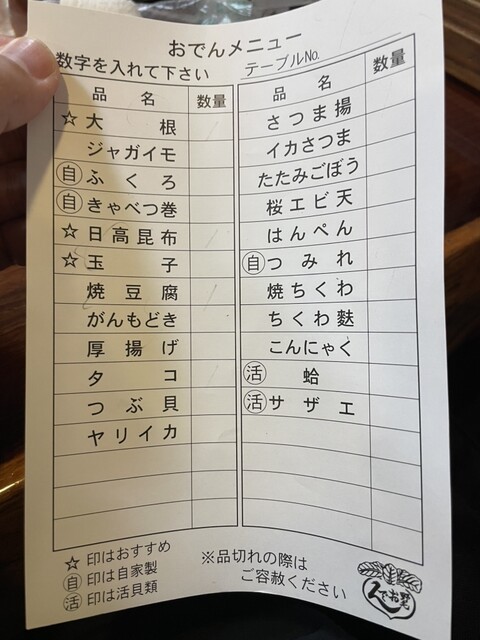 おでんメニュー
数字を入れて下さい テーブルNo.
品名 数量
☆大根
ジャガイモ
自ふくろ
自きゃべつ巻
☆日高昆布
☆玉子
焼豆腐
がんもどき
厚揚げ
タコ
つぶ貝
ヤリイカ
品名 数量
さつま揚
イカさつま
たたみごぼう
桜エビ天
はんぺん
自つみれ
焼ちくわ
ちくわ麩
こんにゃく
活蛤
活サザエ
☆印はおすすめ
自印は自家製
活印は活貝類
※品切れの際は
ご容赦ください